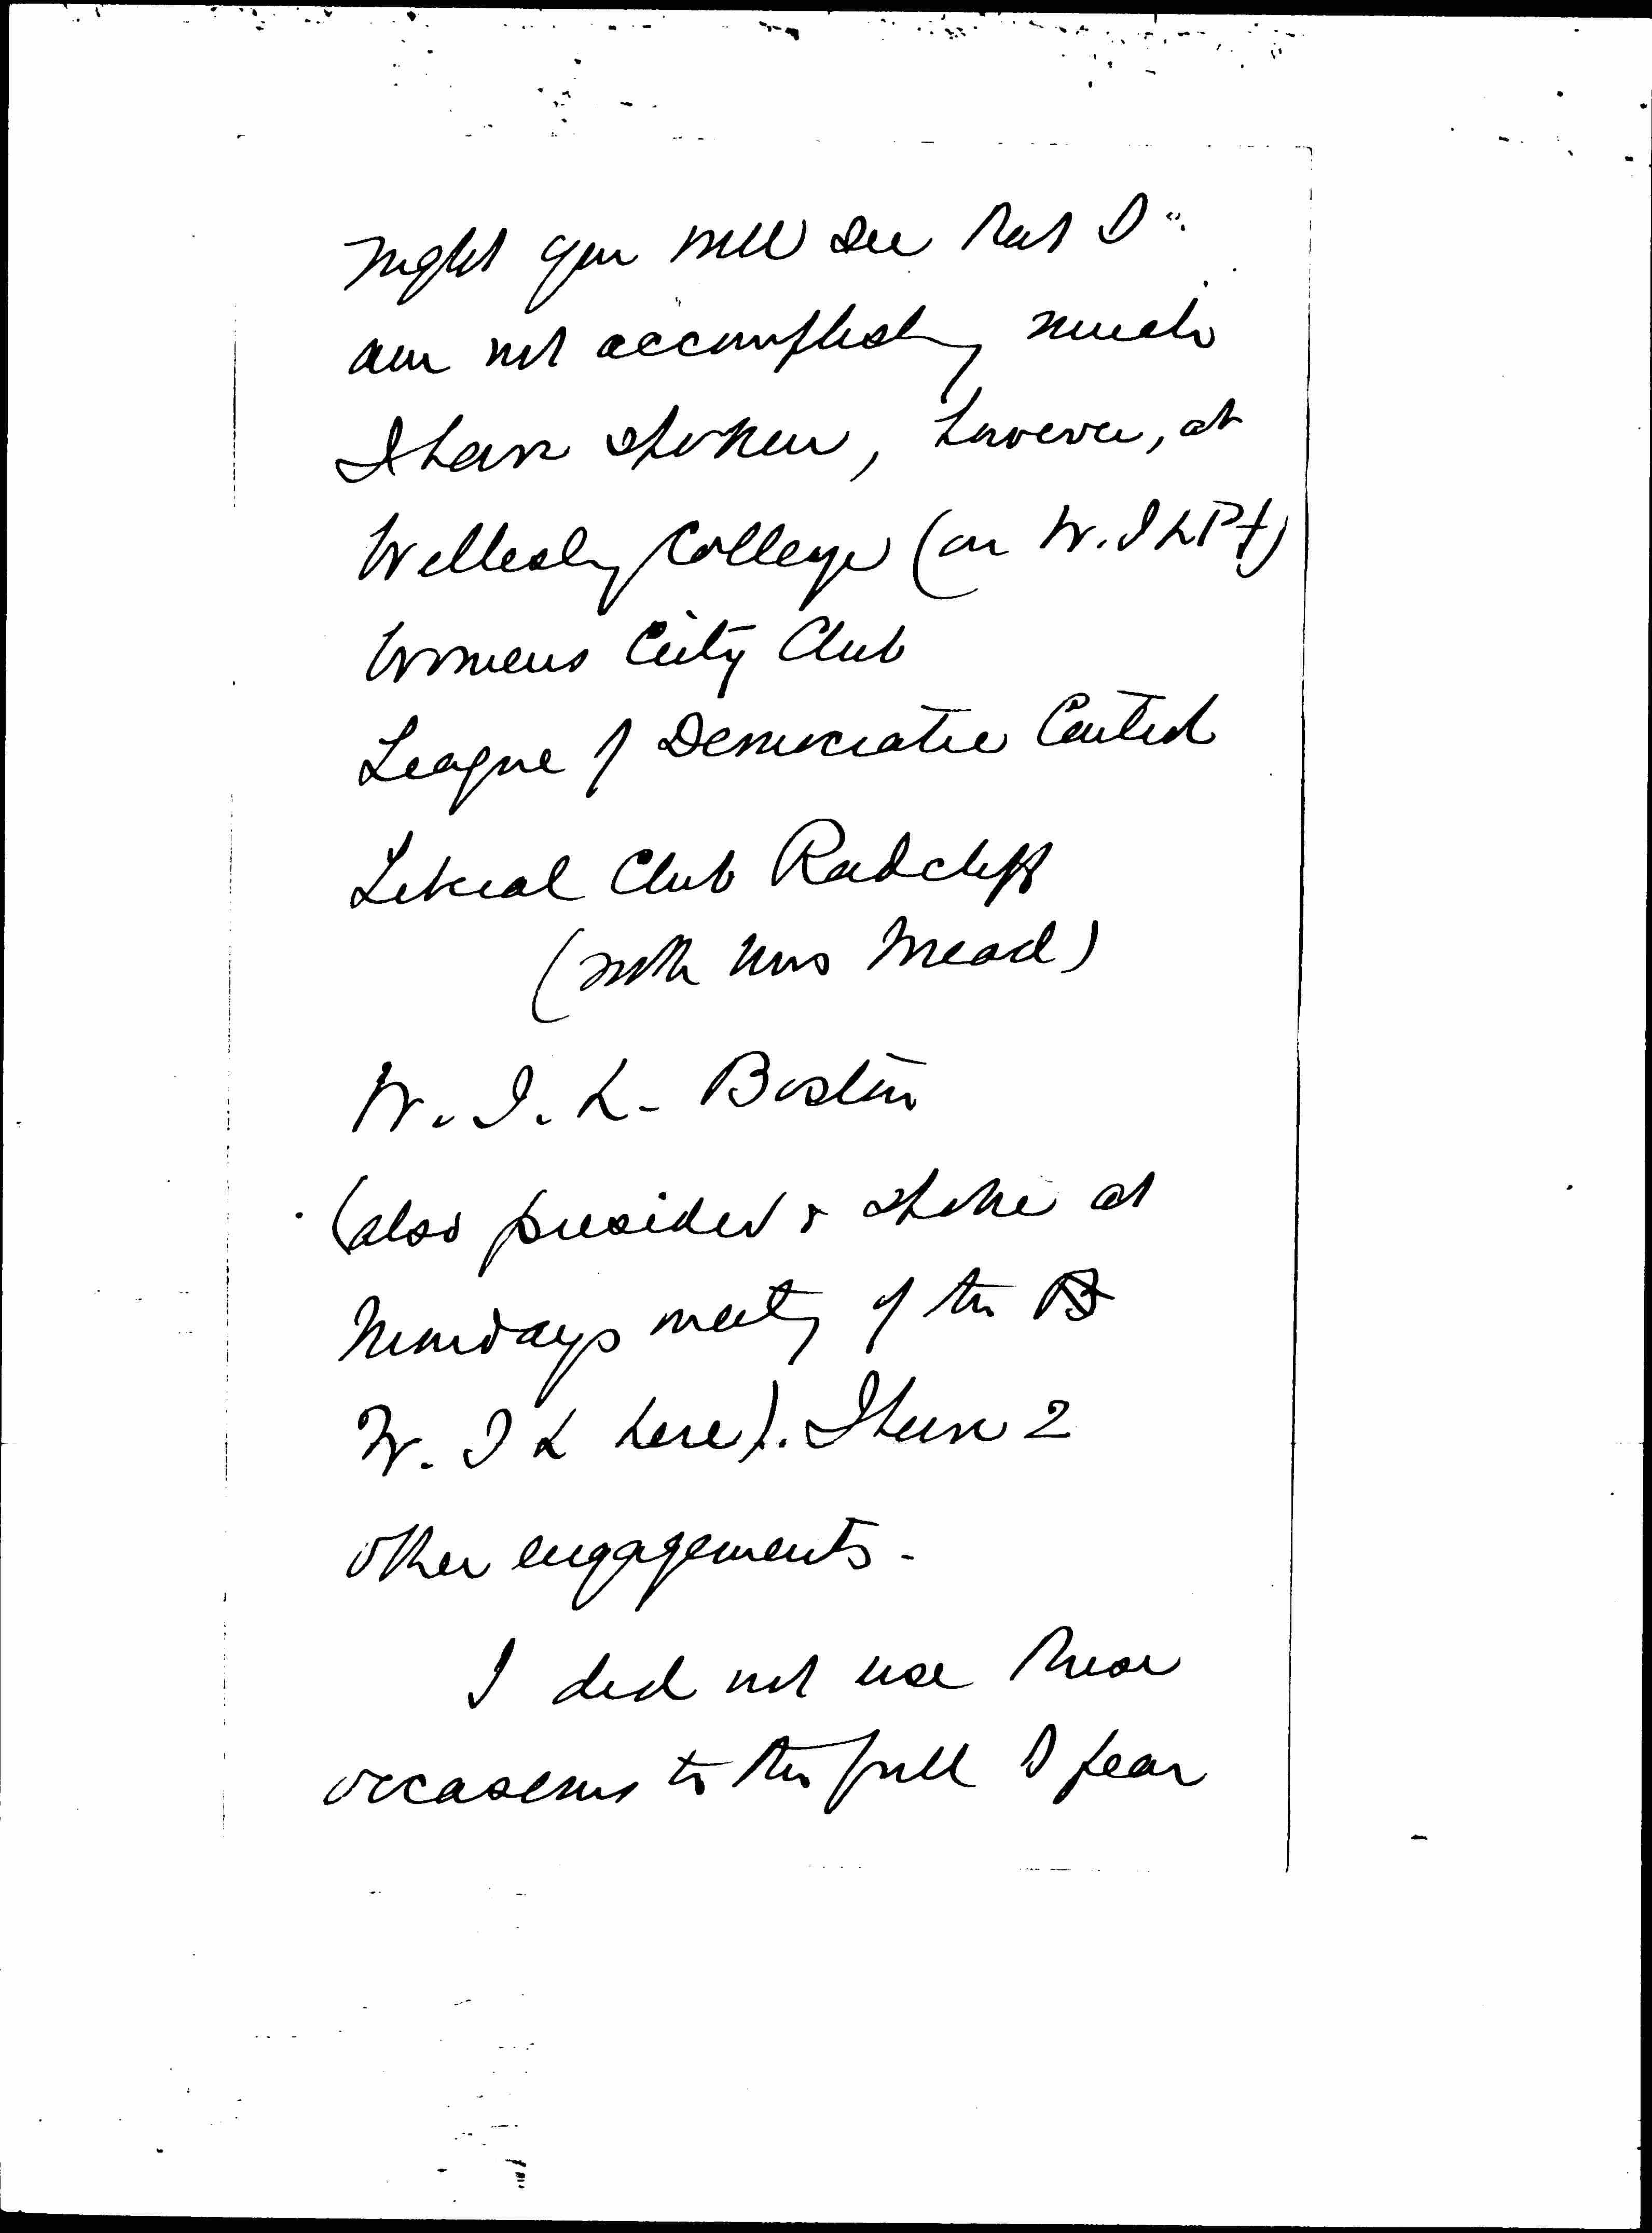 night you will see that I
am not accomplishing much
I have spoken, however, at
Wellesley College (on W.I.L.P.F)
Womens City Club
League of Democratic Control
Liberal Club Radcliff
(with Mrs Mead)
W. I. L. Boston
(also presided & spoke at
Mondays meeting of the B
W. I L here). I have 2
other engagements.
I did not use these
occasions to the full I fear